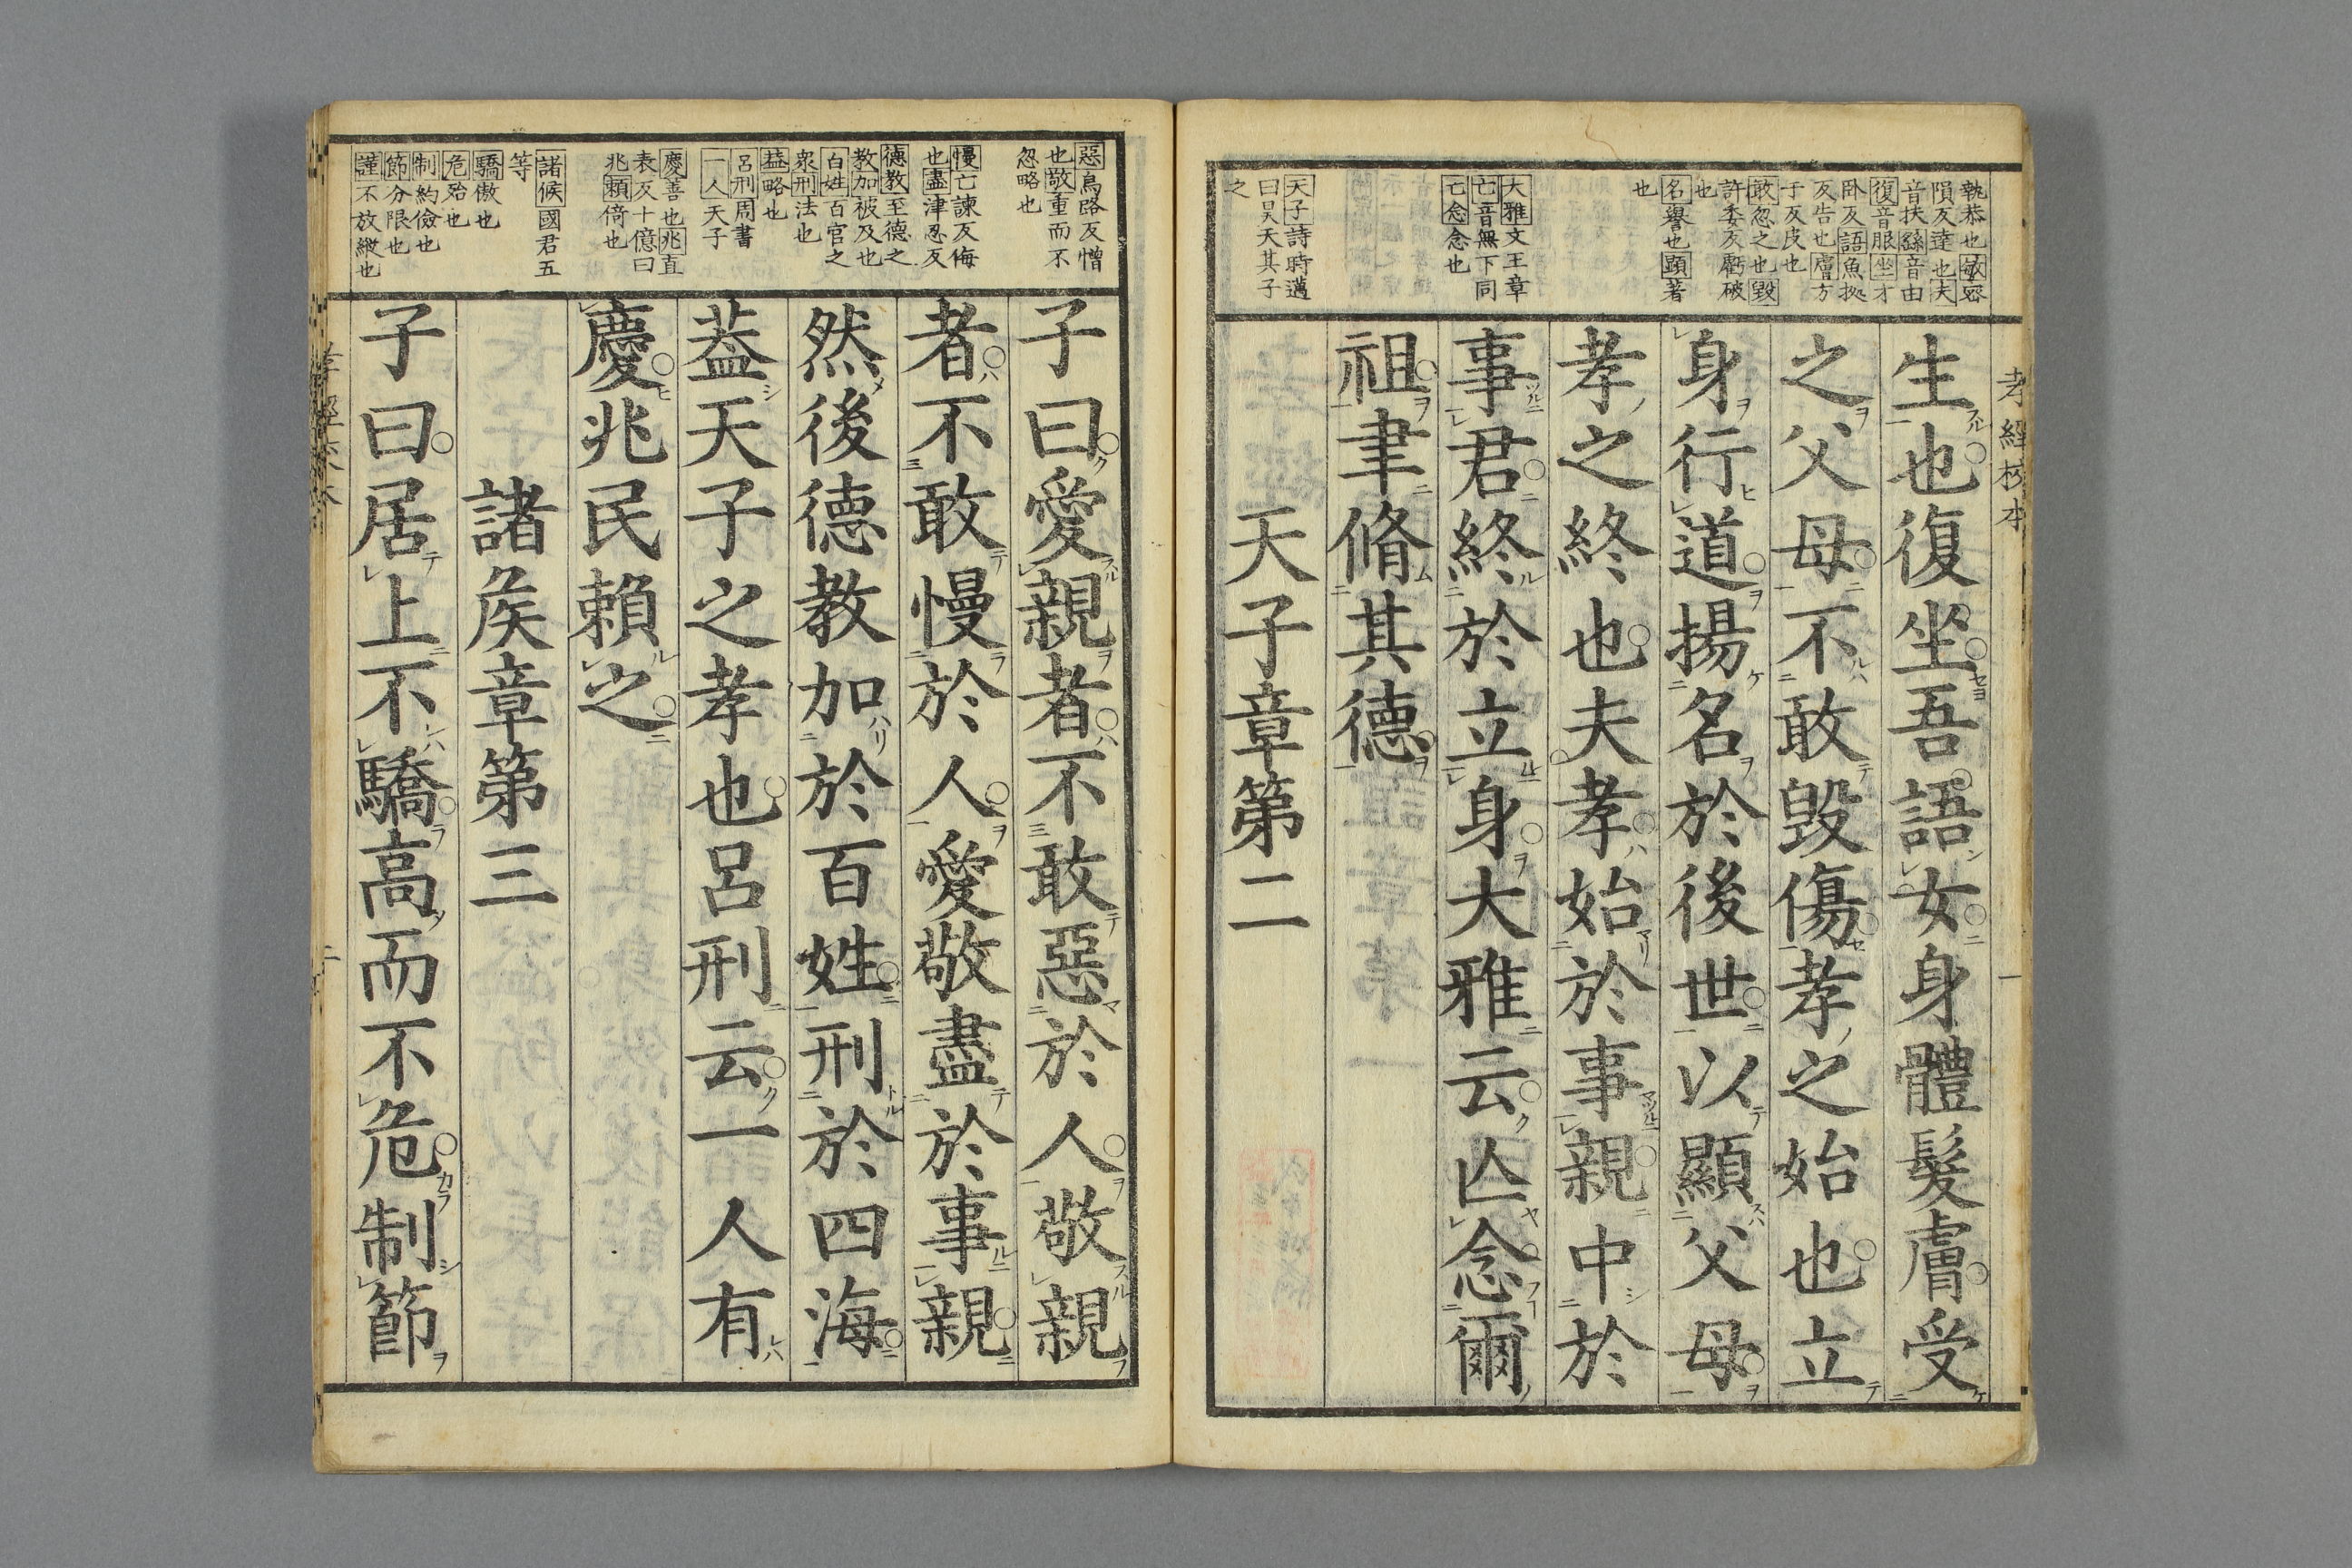 孝經校本
一
執恭也敏密
隕反達也夫
音扶繇音由
復音服坐才
臥反語魚拠
反告也膚方
于反皮也
敢忽之也毀
許委反虧破
也
名譽也顯著
也
大雅文王章
亡音無下同
亡念念也
天子詩時邁
曰昊天其子
之
生也復坐吾語女身體髮膚受
之父母不敢毀傷孝之始也立
身行道揚名於後世以顯父母
孝之終也夫孝始於事親中於
事君終於立身大雅云亾念爾
祖聿脩其德
天子章第二
惡烏路反憎
也敬重而不
忽略也
慢亡諫反侮
也盡津忍反
德教至德之
教加被及也
百姓百官之
衆刑法也
葢略也
呂刑周書
一人天子
慶善也兆直
表反十億曰
兆賴倚也
諸候國君五
等
驕傲也
危殆也
制約儉也
節分限也
謹不放縱也
子曰愛親者不敢惡於人敬親
者不敢慢於人愛敬盡於事親
然後德教加於百姓刑於四海
葢天子之孝也呂刑云一人有
慶兆民賴之
諸矦章第三
子曰居上不驕高而不危制節
二